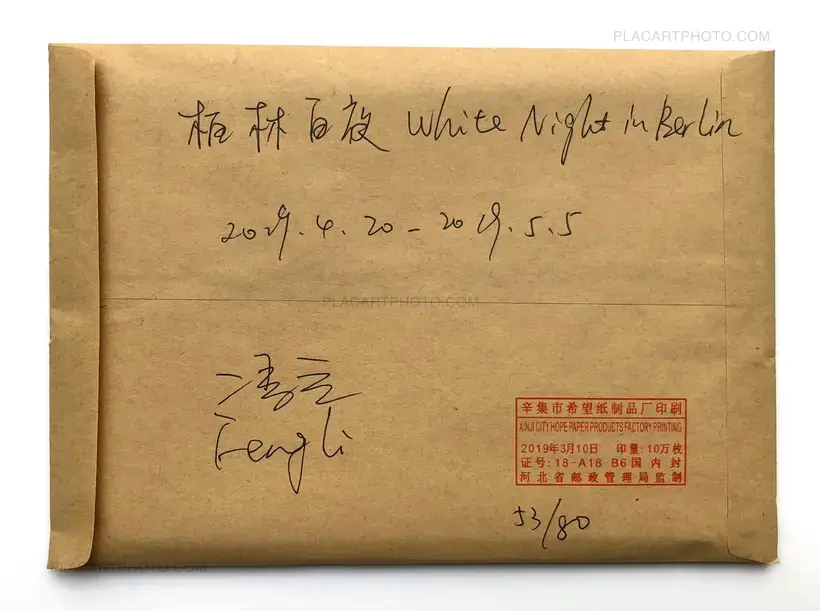 PLACARTPHOTO.COM
柏林白夜 White Night in Berlin
2019.4.20-2019.5.5
PLACARTPHOTO.COM
冯立
Feng Li
辛集市希望纸制品厂印刷
XINJI CITY HOPE PAPER PRODUCTS FACTORY PRINTING
2019年3月10日 印量:10万枚
证号:18-A18-B6国内封
河北省邮政管理局监制
53/80